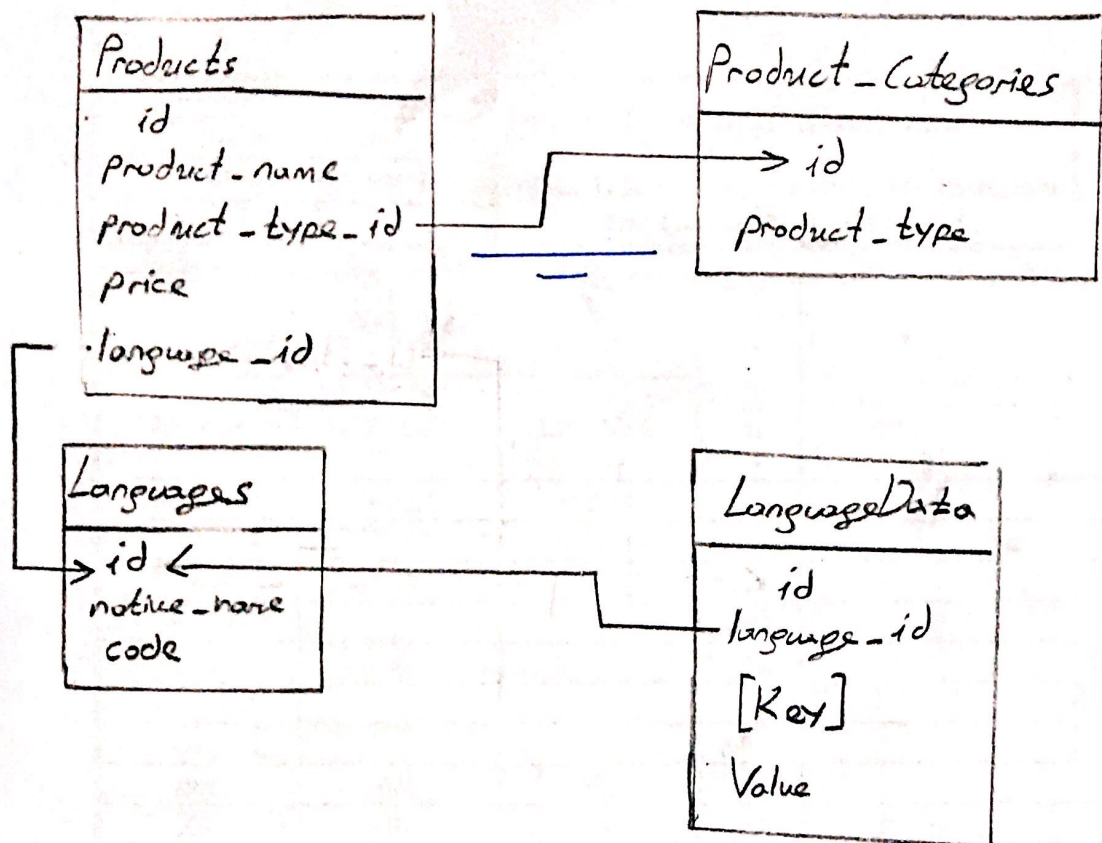 Products
id
product_name
product_type_id
price
language_id
Product_Categories
id
product_type
Languages
id
native_name
code
LanguageData
id
language_id
[Key]
Value